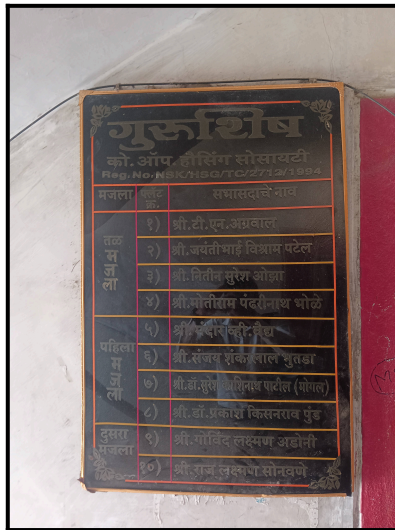 गुरुशिष
को. ऑप. हौसिंग सोसायटी
Reg.No-NSK/HSG/TC/2712/1994
मजला फ्लॅट क्र. सभासदाचे नाव
तळ मजला
१) श्री.टी.एन.अग्रवाल
२) श्री.जयंतीभाई विश्राम पटेल
३) श्री.नितीन सुरेश ओझा
४) श्री.मोतीराम पंढरीनाथ भोळे
पहिला मजला
५) श्री.मंदार व्ही.वैद्य
६) श्री.संजय शंकरलाल भुतडा
७) श्री.डॉ.सुरेश काशिनाथ पाटील (मोगल)
८) श्री.डॉ.प्रकाश किसनराव पुंड
दुसरा मजला
९) श्री.गोविंद लक्ष्मण अडोनी
१०) श्री.राज लक्ष्मण सोनवणे